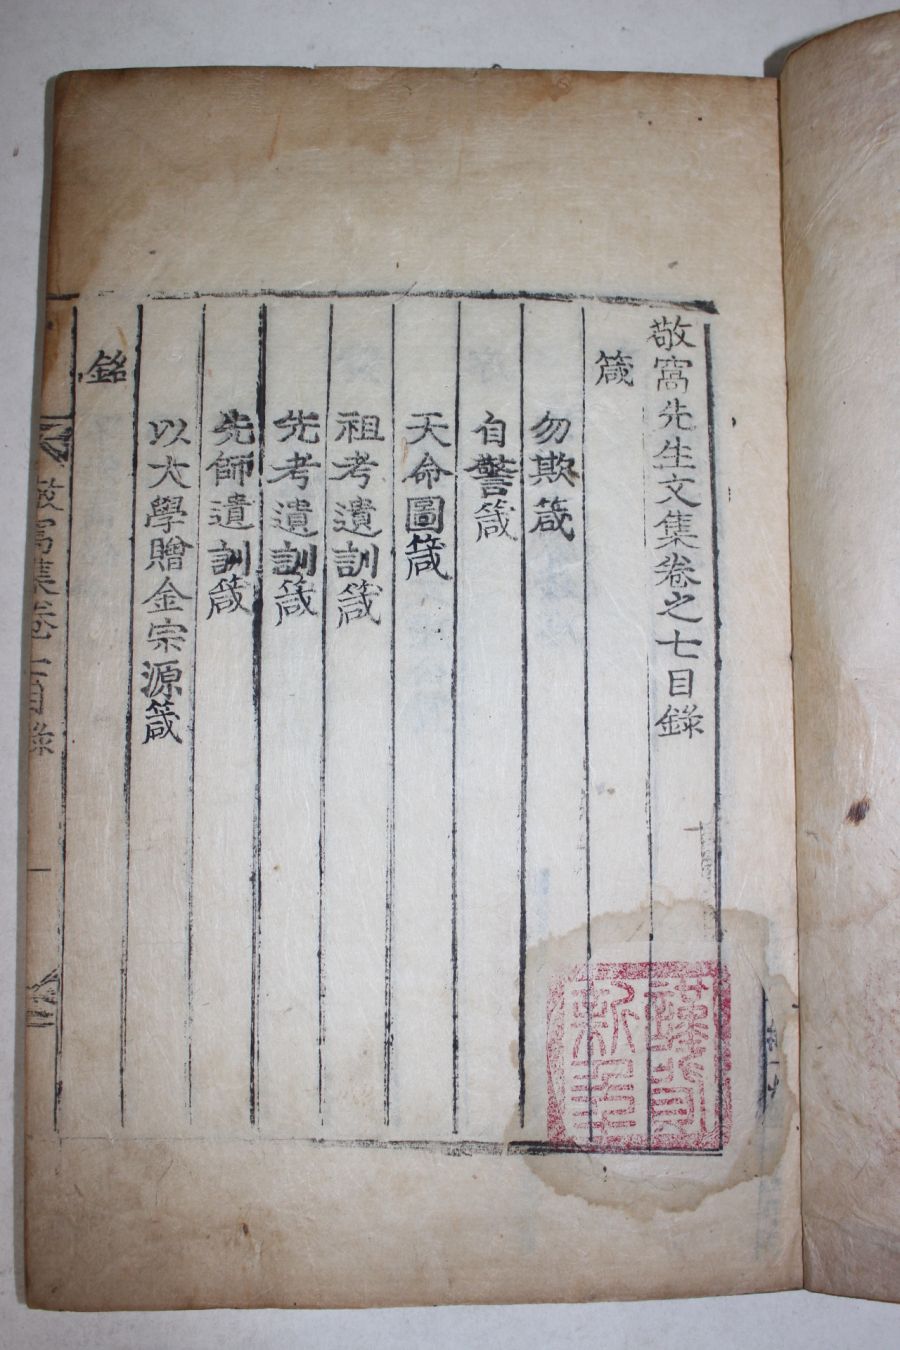 敬窩先生文集卷之七目錄
箴
勿欺箴
自警箴
天命圖箴
祖考遺訓箴
先考遺訓箴
先師遺訓箴
以大學贈金宗源箴
銘
敬窩集卷七目錄 一